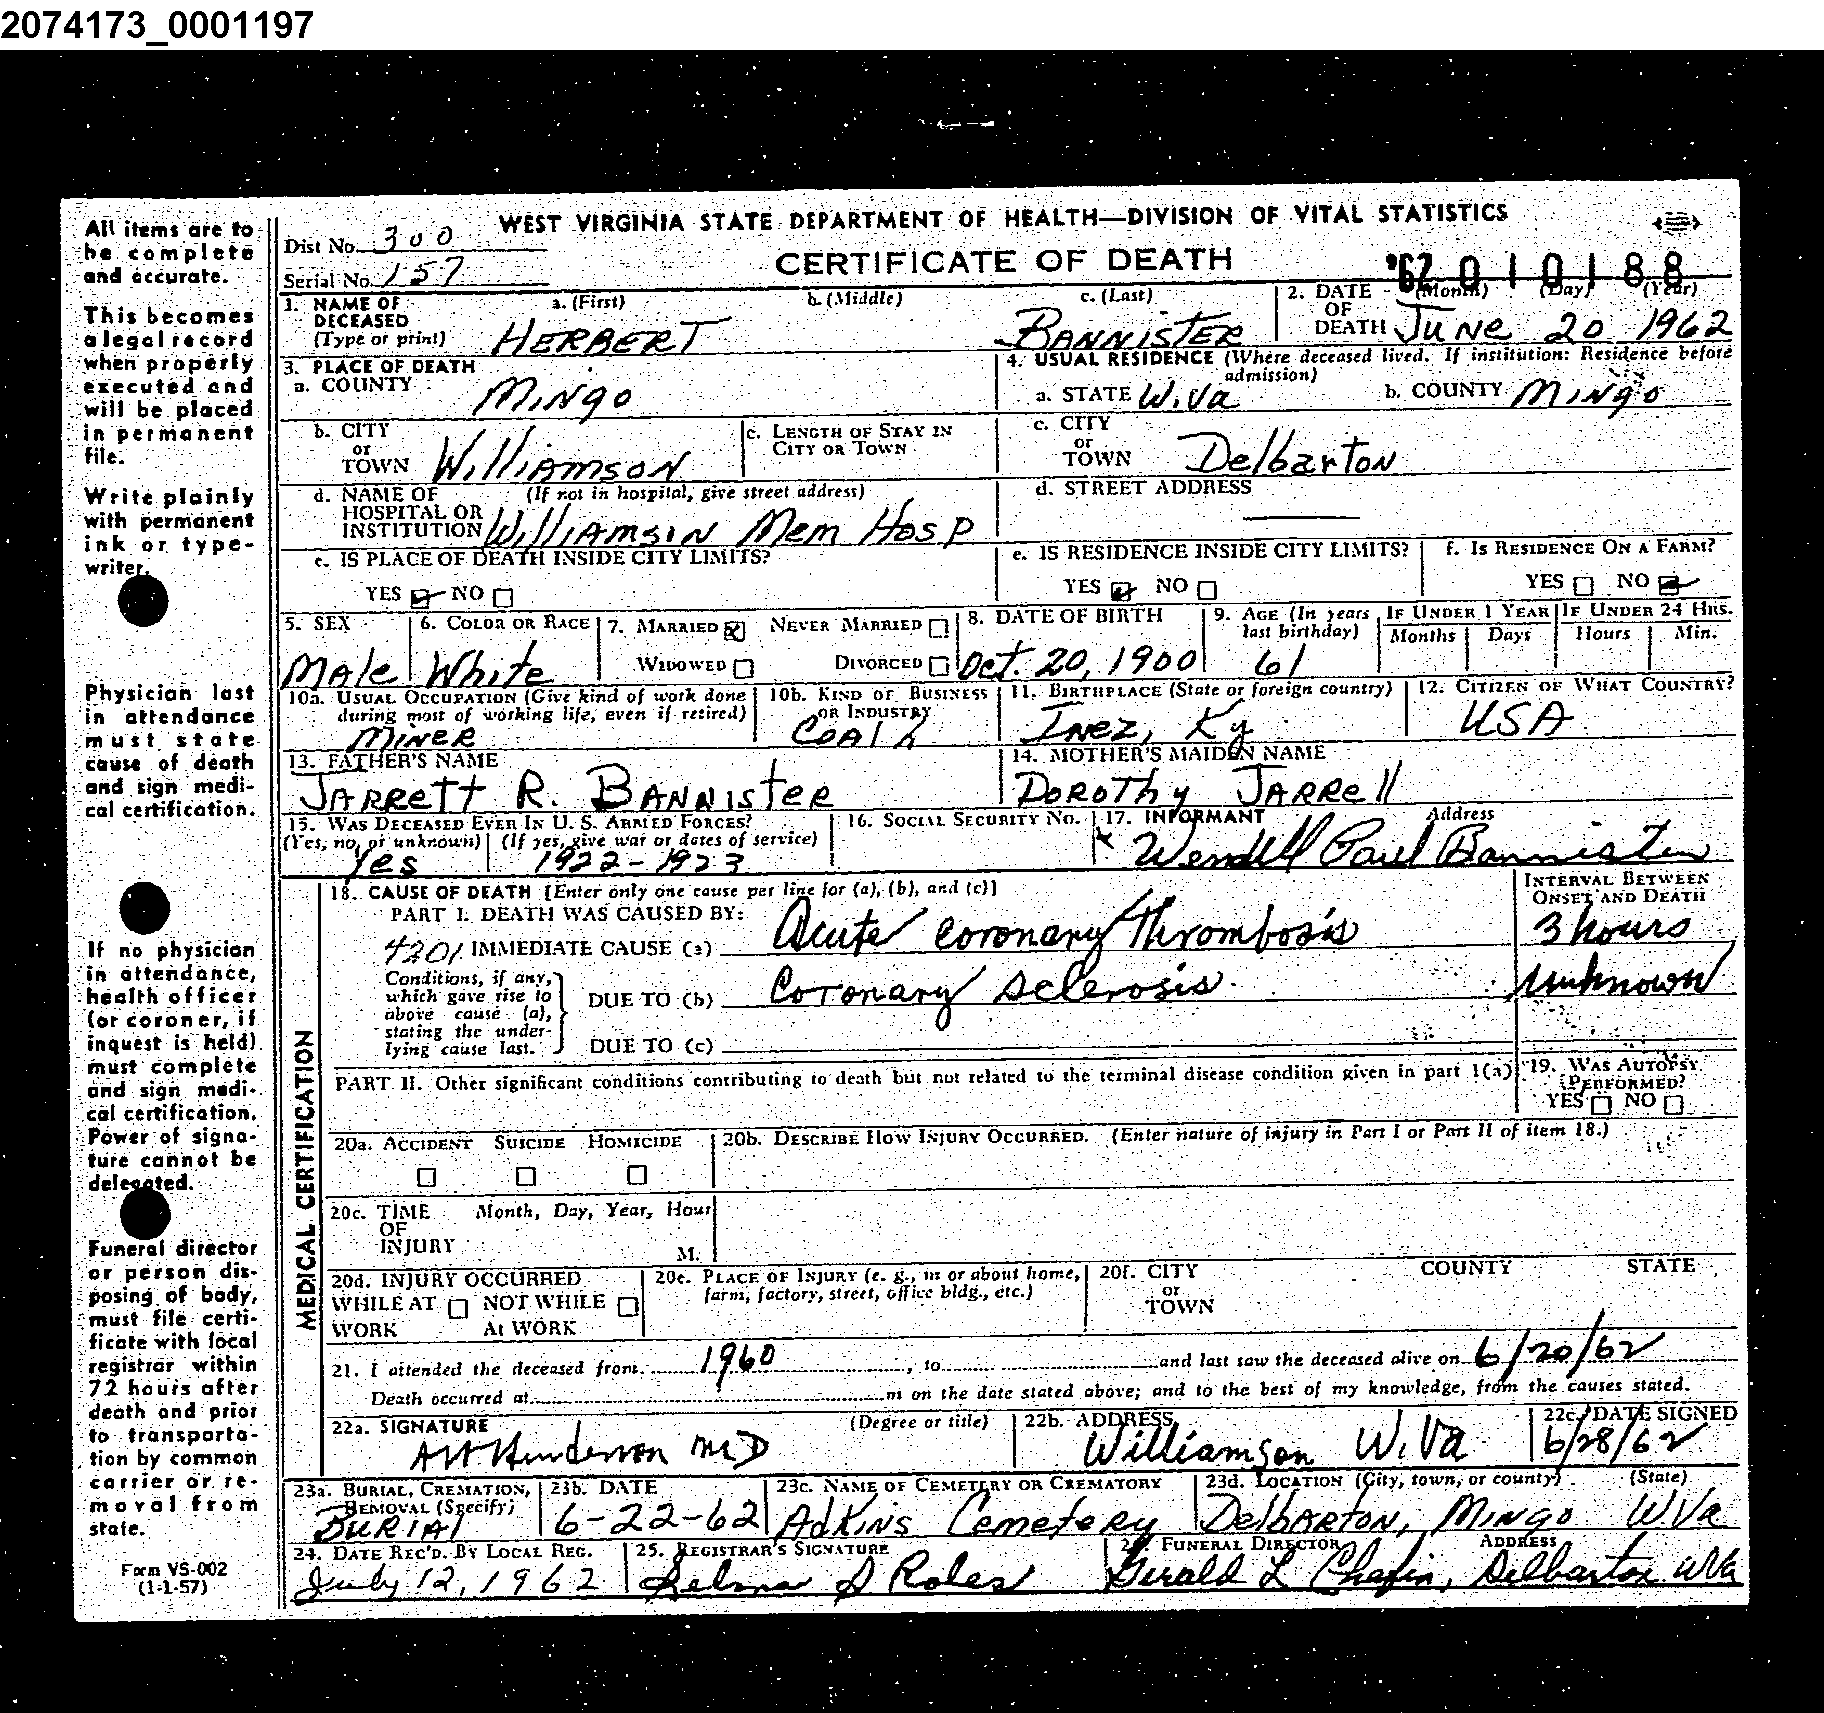 2074173_0001197
WEST VIRGINIA STATE DEPARTMENT OF HEALTH—DIVISION OF VITAL STATISTICS
Dist No. 300
Serial No. 157
CERTIFICATE OF DEATH
'62 010188
1. NAME OF DECEASED (Type or print) a. (First) b. (Middle) c. (Last)
HERBERT BANNISTER
2. DATE OF DEATH (Month) (Day) (Year)
JUNE 20 1962
3. PLACE OF DEATH
a. COUNTY MINGO
4. USUAL RESIDENCE (Where deceased lived. If institution: Residence before admission)
a. STATE W.Va b. COUNTY MINGO
b. CITY or TOWN WilliAMSON
c. LENGTH OF STAY IN CITY OR TOWN
c. CITY or TOWN Delbarton
d. NAME OF HOSPITAL OR INSTITUTION (If not in hospital, give street address)
WilliAMSIN Mem Hosp
d. STREET ADDRESS —
e. IS PLACE OF DEATH INSIDE CITY LIMITS?
YES NO
e. IS RESIDENCE INSIDE CITY LIMITS?
YES NO
f. IS RESIDENCE ON A FARM?
YES NO
5. SEX
Male
6. COLOR OR RACE
White
7. MARRIED NEVER MARRIED
WIDOWED DIVORCED
8. DATE OF BIRTH
Oct. 20, 1900
9. AGE (In years last birthday)
61
IF UNDER 1 YEAR
Months Days
IF UNDER 24 HRS.
Hours Min.
10a. USUAL OCCUPATION (Give kind of work done during most of working life, even if retired)
MINER
10b. KIND OF BUSINESS OR INDUSTRY
COAl
11. BIRTHPLACE (State or foreign country)
INEZ, Ky
12. CITIZEN OF WHAT COUNTRY?
USA
13. FATHER'S NAME
JARRETT R. BANNISTER
14. MOTHER'S MAIDEN NAME
DOROTHY JARREll
15. WAS DECEASED EVER IN U. S. ARMED FORCES?
(Yes, no, or unknown) (If yes, give war or dates of service)
Yes 1922-1923
16. SOCIAL SECURITY No.
17. INFORMANT Address
x Wendell Paul Bannister
MEDICAL CERTIFICATION
18. CAUSE OF DEATH [Enter only one cause per line for (a), (b), and (c)]
INTERVAL BETWEEN ONSET AND DEATH
PART I. DEATH WAS CAUSED BY:
4201 IMMEDIATE CAUSE (a) Acute Coronary Thrombosis 3 hours
Conditions, if any, which gave rise to above cause (a), stating the underlying cause last.
DUE TO (b) Coronary Sclerosis. Unknown
DUE TO (c)
PART II. Other significant conditions contributing to death but not related to the terminal disease condition given in part 1(a)
19. WAS AUTOPSY PERFORMED?
YES NO
20a. ACCIDENT SUICIDE HOMICIDE
20b. DESCRIBE HOW INJURY OCCURRED. (Enter nature of injury in Part I or Part II of item 18.)
20c. TIME OF INJURY Month, Day, Year, Hour
M.
20d. INJURY OCCURRED
WHILE AT WORK NOT WHILE At WORK
20e. PLACE OF INJURY (e. g., in or about home, farm, factory, street, office bldg., etc.)
20f. CITY or TOWN COUNTY STATE
21. I attended the deceased from 1960, to and last saw the deceased alive on 6/20/62
Death occurred at m on the date stated above; and to the best of my knowledge, from the causes stated.
22a. SIGNATURE (Degree or title)
Henderson MD
22b. ADDRESS
Williamson W.Va
22c. DATE SIGNED
6/28/62
23a. BURIAL, CREMATION, REMOVAL (Specify)
BURIAl
23b. DATE
6-22-62
23c. NAME OF CEMETERY OR CREMATORY
AdKINS Cemetery
23d. LOCATION (City, town, or county) (State)
DelBARTON, MINGO WVa
24. DATE REC'D. BY LOCAL REG.
July 12, 1962
25. REGISTRAR'S SIGNATURE
Selma S Roles
FUNERAL DIRECTOR ADDRESS
Gerald L Chafin, Delbarton WVa
All items are to be complete and accurate.
This becomes a legal record when properly executed and will be placed in permanent file.
Write plainly with permanent ink or type-writer.
Physician last in attendance must state cause of death and sign medi-cal certification.
If no physician in attendance, health officer (or coroner, if inquest is held) must complete and sign medi-cal certification. Power of signa-ture cannot be delegated.
Funeral director or person dis-posing of body, must file certi-ficate with local registrar within 72 hours after death and prior to transporta-tion by common carrier or re-moval from state.
Form VS-002
(1-1-57)